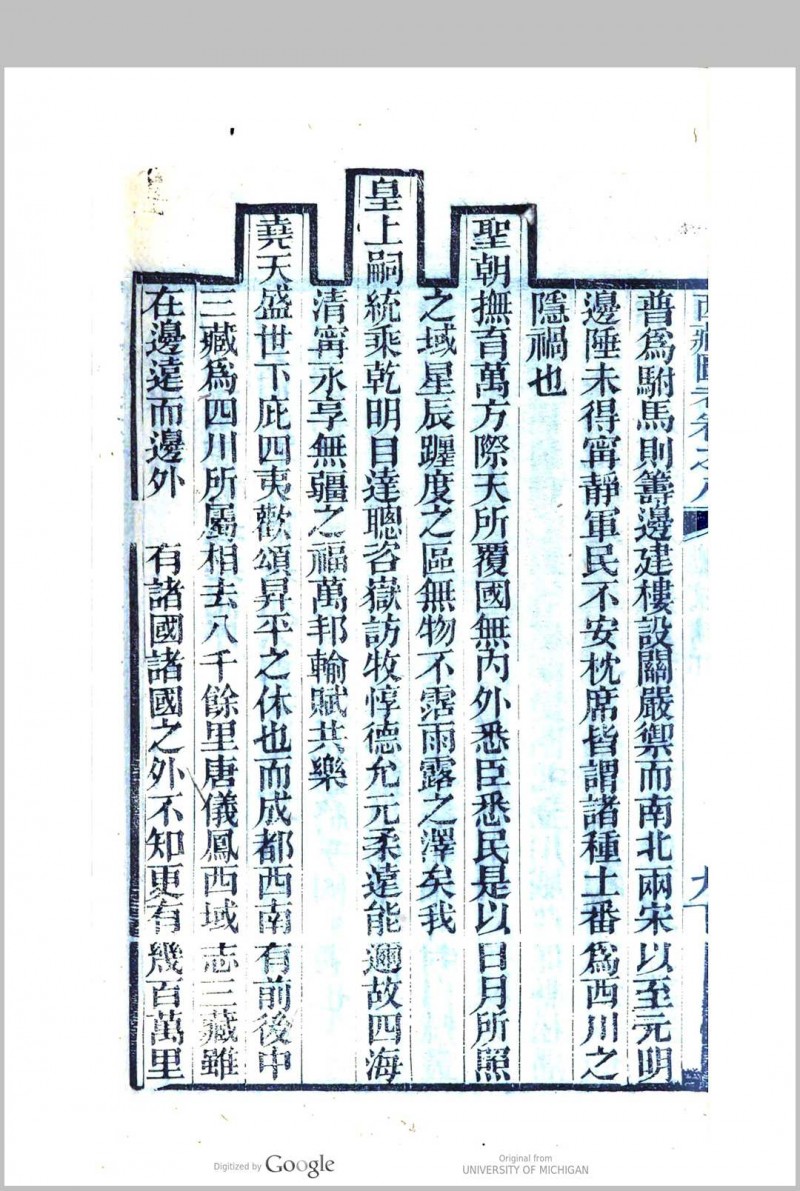 西藏圖考卷之八
普爲駙馬則籌邊建樓設關嚴禦而南北兩宋以至元明
邊陲未得甯靜軍民不安枕席皆謂諸種土番爲西川之
隱禍也
聖朝撫有萬方際天所覆國無內外悉臣悉民是以日月所照
之域星辰躔度之區無物不霑雨露之澤矣我
皇上嗣統乘乾明目達聰咨嶽訪牧惇德允元柔遠能邇故四海
清甯永享無疆之福萬邦輸賦共樂
堯天盛世下庇四夷歡頌昇平之休也而成都西南有前後中
三藏爲四川所屬相去八千餘里唐儀鳳西域志三藏雖
在邊遠而邊外有諸國諸國之外不知更有幾百萬里
Digitized by Google
Original from
UNIVERSITY OF MICHIGAN